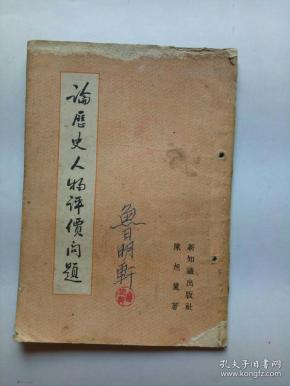 論歷史人物評價問題
陳旭麓著
新知識出版社
魯日明軒
孔夫子旧书网